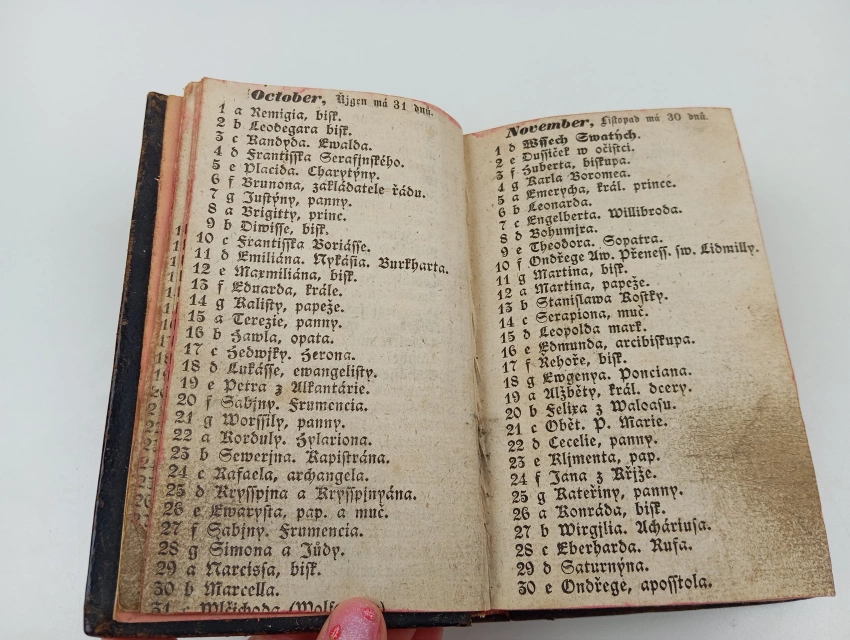 October, Řjgen má 31 dnů.
1 a Remigia, bisk.
2 b Leodegara bisk.
3 c Kandyda. Ewalda.
4 d Frantisska Serafjnského.
5 e Placida. Charytýny.
6 f Brunona, zakládatele řádu.
7 g Justýny, panny.
8 a Brigitty, princ.
9 b Diwisse, bisk.
10 c Frantisska Boriásse.
11 d Emiliána. Nykásia. Burkharta.
12 e Maxmiliána, bisk.
13 f Eduarda, krále.
14 g Kalisty, papeže.
15 a Terezie, panny.
16 b Hawla, opata.
17 c Hedwjky. Herona.
18 d Lukásse, ewangelisty.
19 e Petra z Alkantárie.
20 f Sabjny. Frumencia.
21 g Worssily, panny.
22 a Korduly. Hylariona.
23 b Sewerjna. Kapistrána.
24 c Rafaela, archangela.
25 d Krysspjna a Krysspjnyána.
26 e Ewarysta, pap. a muč.
27 f Sabjny. Frumencia.
28 g Simona a Jůdy.
29 a Narcissa, bisk.
30 b Marcella.
31 c Wlčichoda
November, Listopad má 30 dnů.
1 d Wssech Swatých.
2 e Dussiček w očistci.
3 f Huberta, biskupa.
4 g Karla Boromea.
5 a Emerycha, král. prince.
6 b Leonarda.
7 c Engelberta. Willibroda.
8 d Bohumjra.
9 e Theodora. Sopatra.
10 f Ondřege Aw. Přeness. sw. Lidmilly.
11 g Martina, bisk.
12 a Martina, papeže.
13 b Stanislawa Kostky.
14 c Serapiona, muč.
15 d Leopolda mark.
16 e Edmunda, arcibiskupa.
17 f Řehoře, bisk.
18 g Ewgenya. Ponciana.
19 a Alžběty, král. dcery.
20 b Felixa z Waloasu.
21 c Obět. P. Marie.
22 d Cecelie, panny.
23 e Kljmenta, pap.
24 f Jana z Křjže.
25 g Kateřiny, panny.
26 a Konráda, bisk.
27 b Wirgjlia. Acháriusa.
28 c Eberharda. Rufa.
29 d Saturnýna.
30 e Ondřege, aposstola.